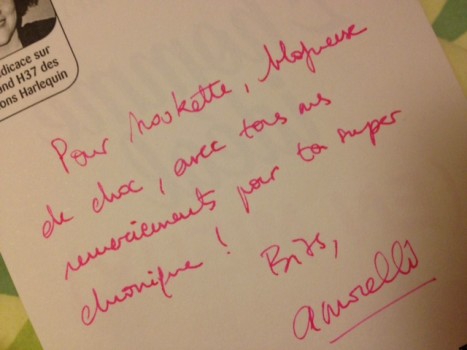 dicace sur
and H37 des
ons Harlequin
Pour Noukette, blogueuse
de choc, avec tous mes
remerciements pour ta super
chronique !
Bises,